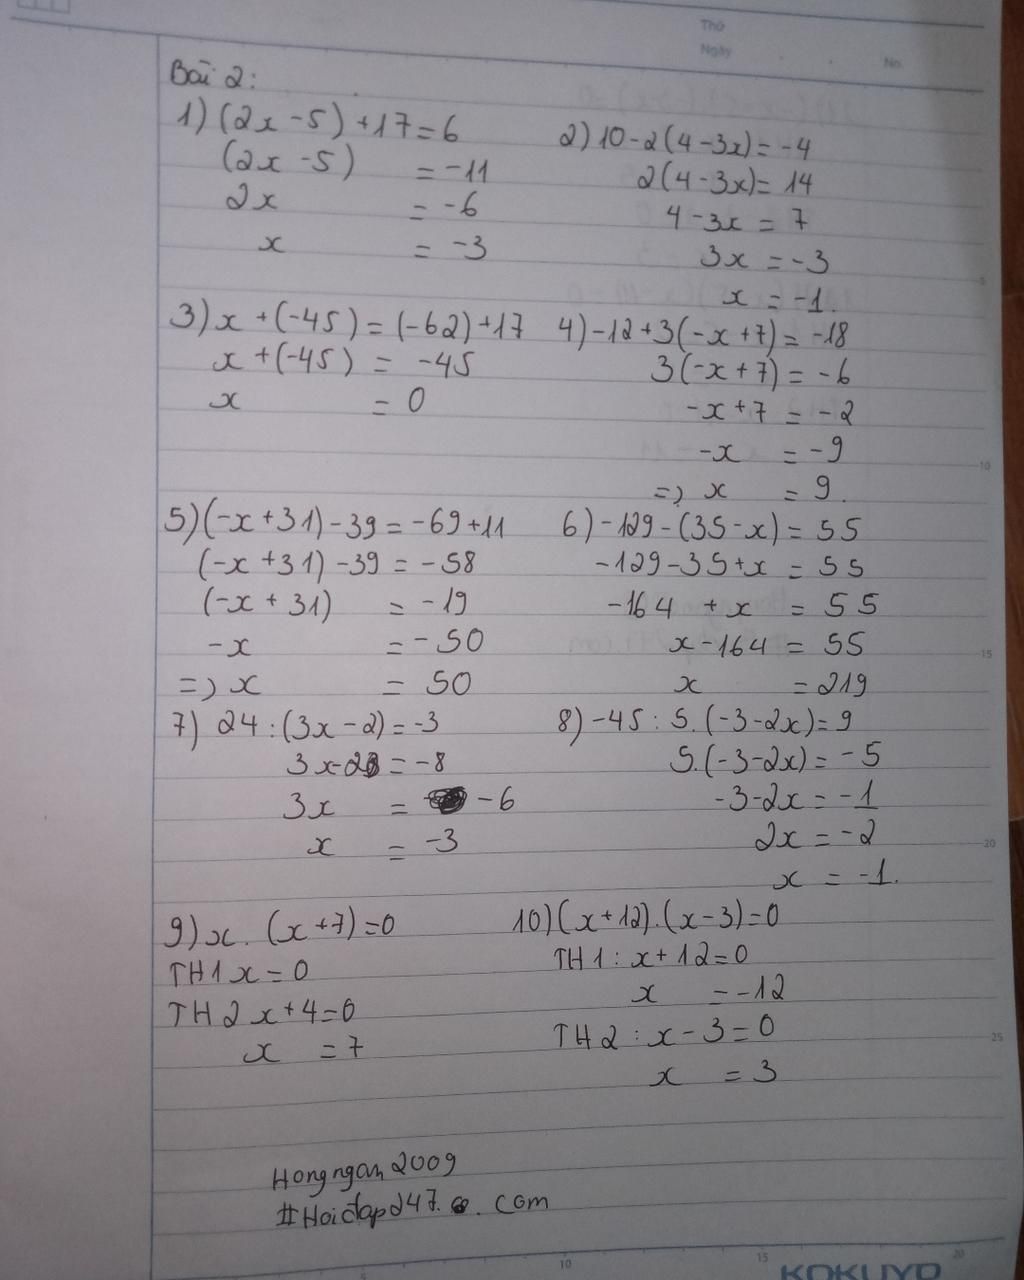 Thứ
Ngày
No.
Bài 2:
1) (2x - 5) + 17 = 6
(2x - 5) = -11
2x = -6
x = -3
2) 10 - 2(4 - 3x) = -4
2(4 - 3x) = 14
4 - 3x = 7
3x = -3
x = -1.
3) x + (-45) = (-62) + 17
x + (-45) = -45
x = 0
4) -12 + 3(-x + 7) = -18
3(-x + 7) = -6
-x + 7 = -2
-x = -9
=> x = 9.
5) (-x + 31) - 39 = -69 + 11
(-x + 31) - 39 = -58
(-x + 31) = -19
-x = -50
=> x = 50
6) -129 - (35 - x) = 55
-129 - 35 + x = 55
-164 + x = 55
x - 164 = 55
x = 219
7) 24 : (3x - 2) = -3
3x - 2 = -8
3x = -6
x = -3
8) -45 : 5.(-3 - 2x) = 9
5.(-3 - 2x) = -5
-3 - 2x = -1
2x = -2
x = -1.
9) x. (x + 7) = 0
TH1 x = 0
TH2 x + 4 = 0
x = 7
10) (x + 12).(x - 3) = 0
TH1 : x + 12 = 0
x = -12
TH2 : x - 3 = 0
x = 3
Hongngan2009
#Hoidap247. . com
5 10 15 20
KOKUYO